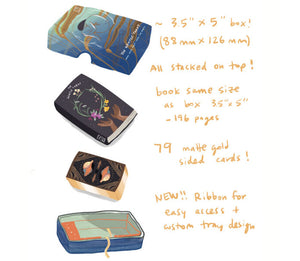 ~ 3.5" x 5" box!
(88mm x 126 mm)
All stacked on top!
book same size
as box 3.5"x5"
~ 196 pages
79 matte gold
sided cards!
NEW!! Ribbon for
easy access +
custom tray design